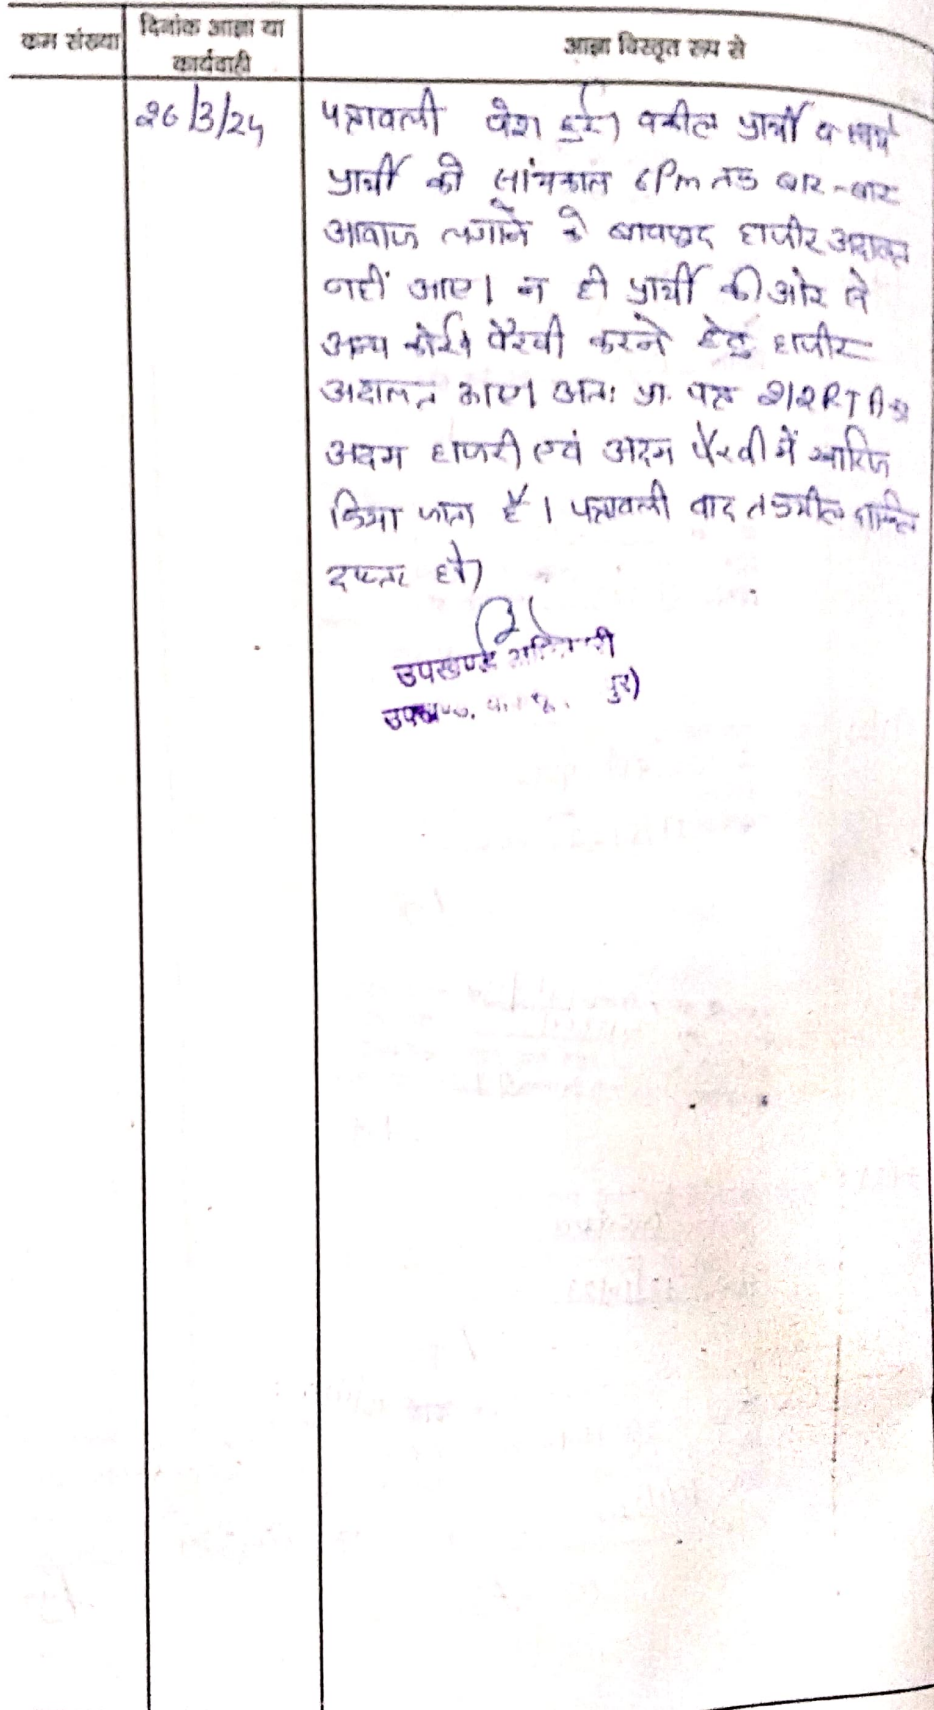 कम संख्या
दिनांक आज्ञा या
कार्यवाही
आज्ञा विस्तृत रूप से
26/3/24
पत्रावली पेश हुई। वकील प्रार्थी व स्वयं
प्रार्थी को सांयकाल 6 Pm तक बार-बार
आवाज लगाने के बावजूद हाजीर अदालत
नहीं आए। न ही प्रार्थी की ओर से
अन्य कोई पैरवी करने हेतु हाजीर
अदालत आए। अतः प्रा. पत्र 212 RTA
अदम हाजरी एवं अदम पैरवी में खारिज
किया जाता है। पत्रावली बाद तकमील दाखिल
दफ्तर हो।
उपखण्ड अधिकारी
पुर)